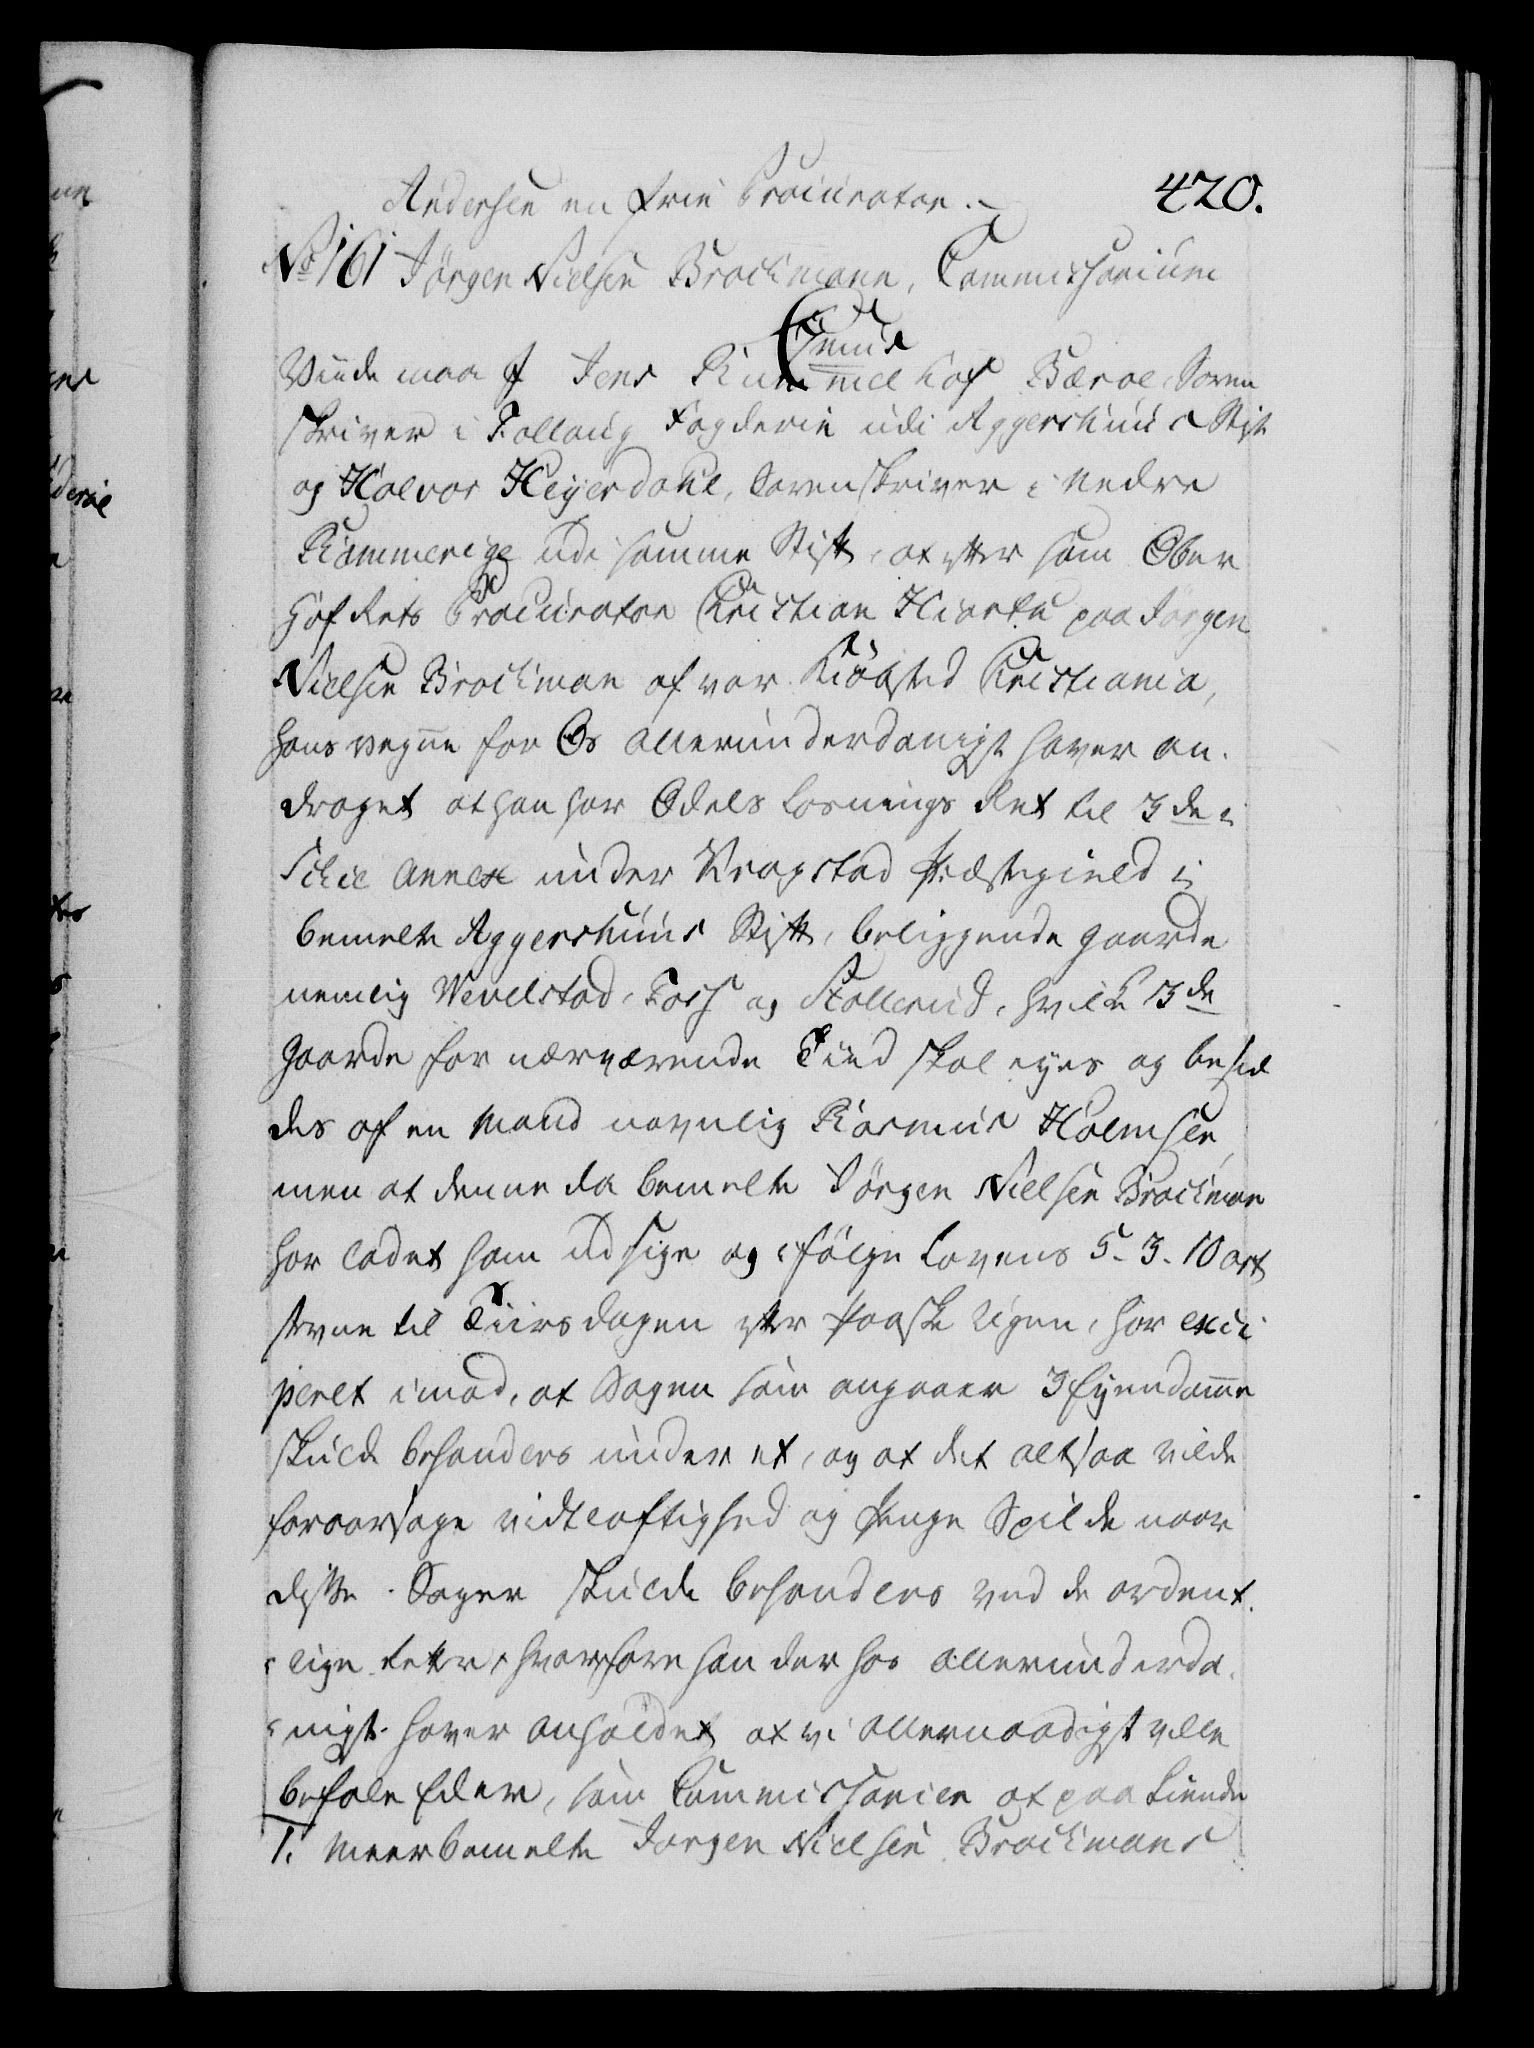 420.
Andersen en frie Procurator.
No 161 Jörgen Nielsen Brockmann, Commissorium
Cmus
Viide maa I Jens Rummelhof Bæroe, Soren
skriver i Follaug Fogderie udi Aggershuus Stift
og Halvor Heyerdahl, Sorenskriver i Nedre
Rommerige udi samme Stift, at efter som Ober
Hof Rets Procurator Christian Hiorth paa Jörgen
Nielsen Brockman af vor Kiöbsted Christiania,
hans vegne for Os allerunderdanigst haver an-
draget at han har Odels Losnings Ret til 3de i
Schie Annex under Kragstad Præstegield i
bemelte Aggershuus Stift, beliggende gaarde
nemlig Wevelstad, Foss og Stollerud, hvilke 3de
gaarde for nærværende Tiid skal eyes og besid
des af en Mand navnlig Rasmus Holmsen
men at denne da bemelte Jörgen Nielsen Brockman
har ladet ham udsige og i fölge Lovens 5-3-10 art
stevne til Tiirsdagen efter Paaske Ugen, har exci
peret imod, at Sagen som angaaer 3 Eyendomme
skulde behandles under et, og at det altsaa vilde
foraarsage vidtloftighed og Penge Spilde naar
disse Sager skulde behandles ved de ordent-
lige Retter, hvorfore han der hos allerunderda-
nigst haver anholdet at vi allernaadigst ville
befale Eder, som Commissarier at paakiende
1. Meerbemelte Jorgen Nielsen Brockmans